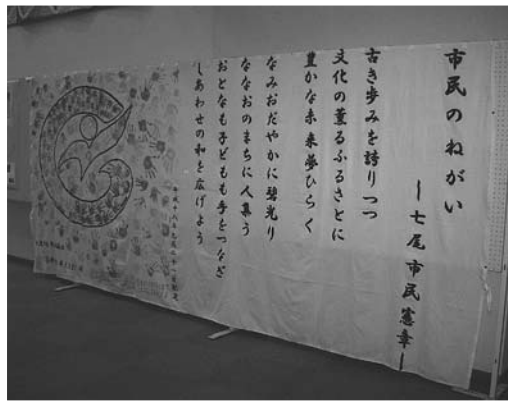 市民のねがい
―七尾市民憲章―
古き歩みを誇りつつ
文化の薫るふるさとに
豊かな未来夢ひらく
なみおだやかに碧光り
ななおのまちに人集う
おとなも子どもも手をつなぎ
しあわせの和を広げよう